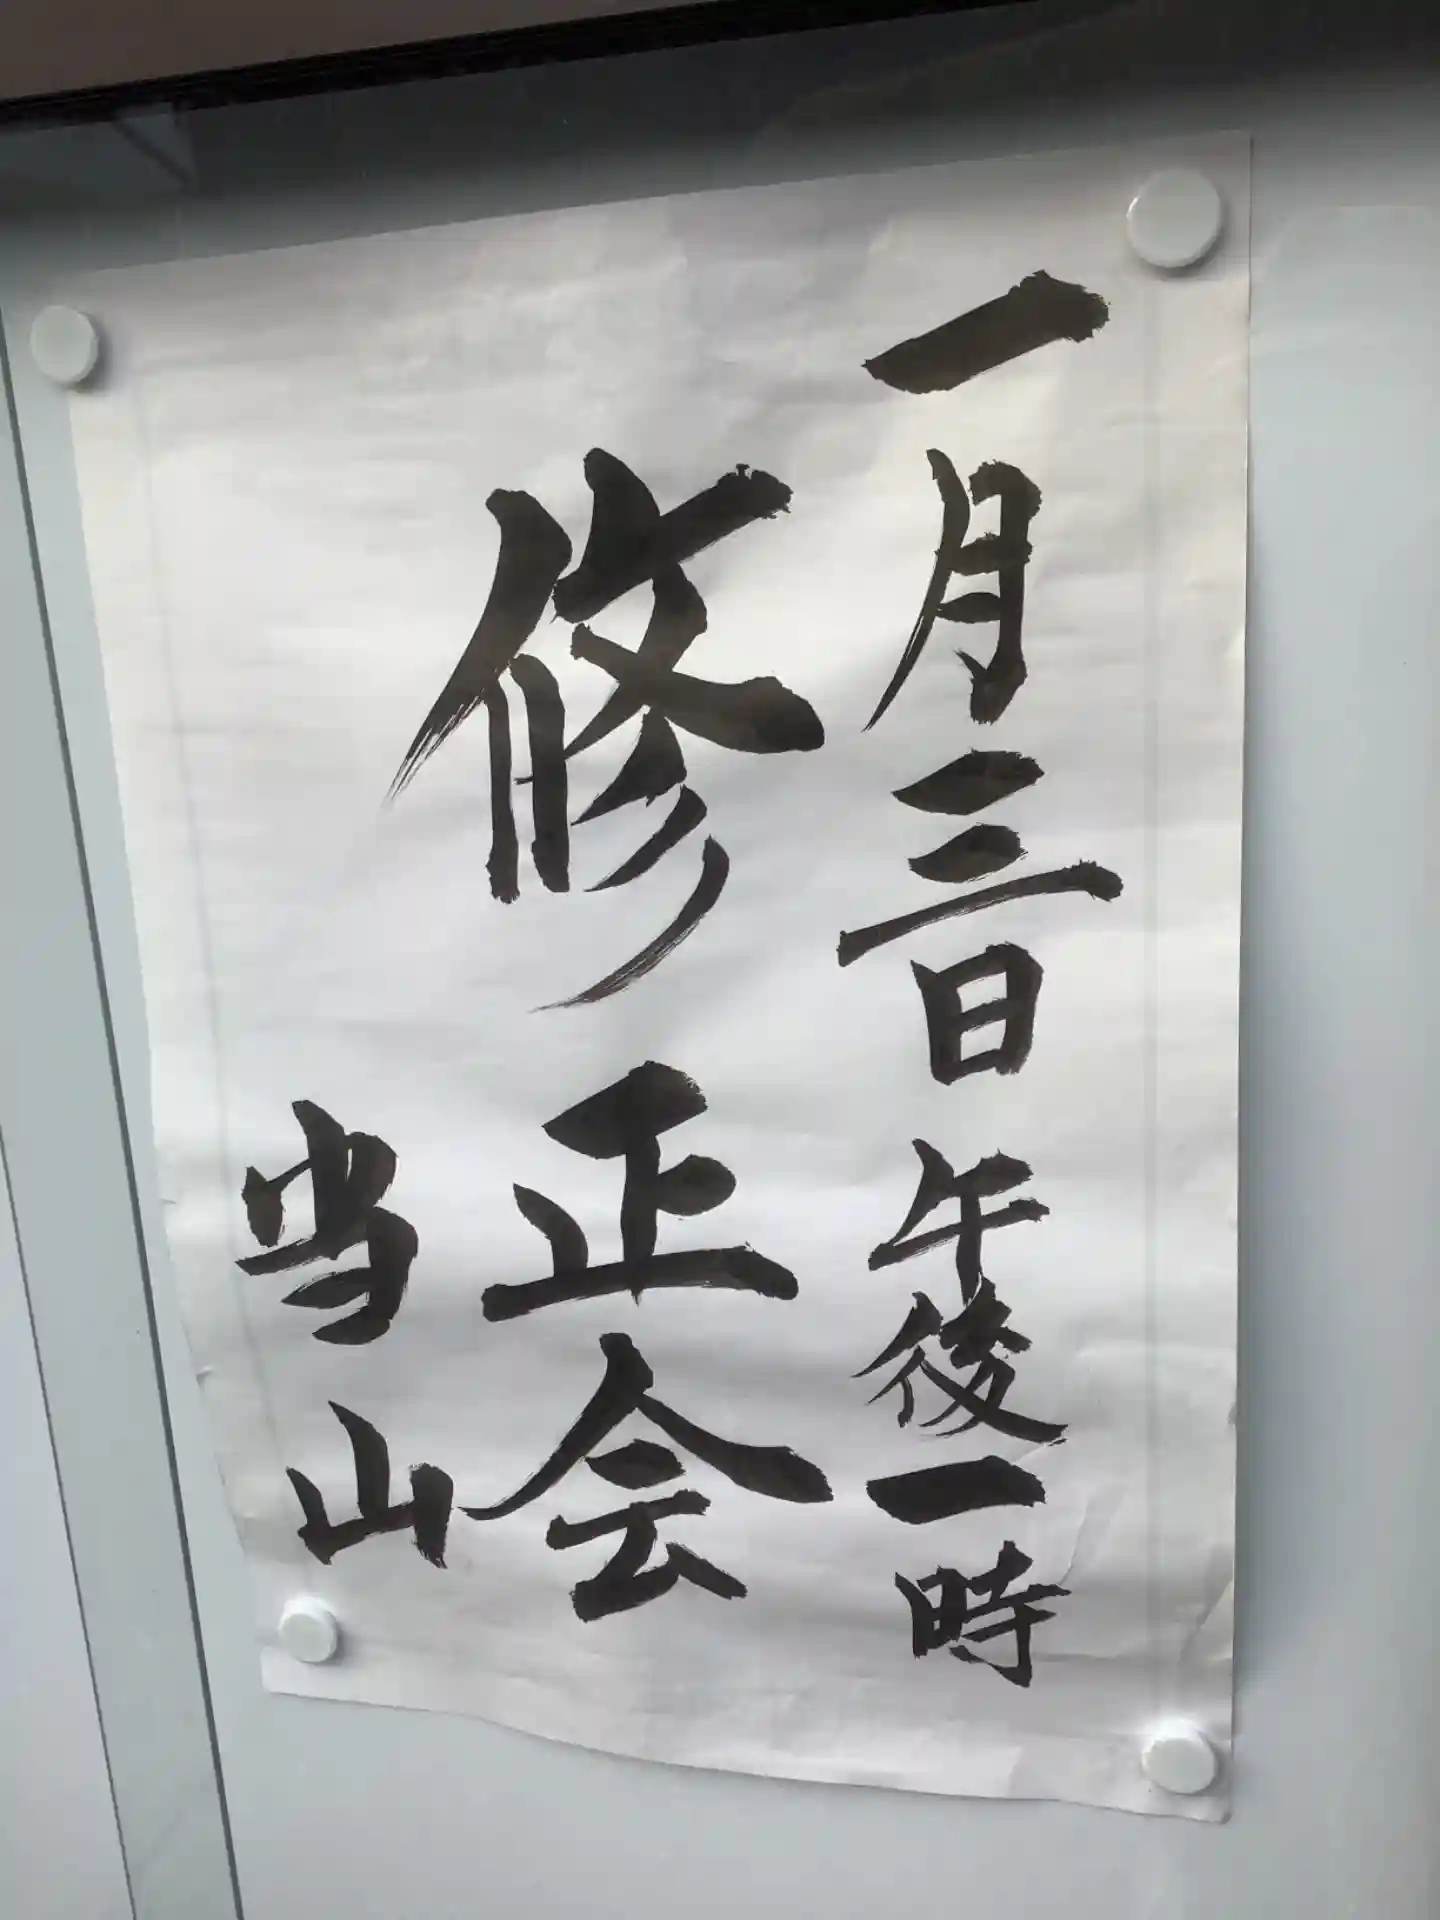 一月三日 午後一時
修正会
当山